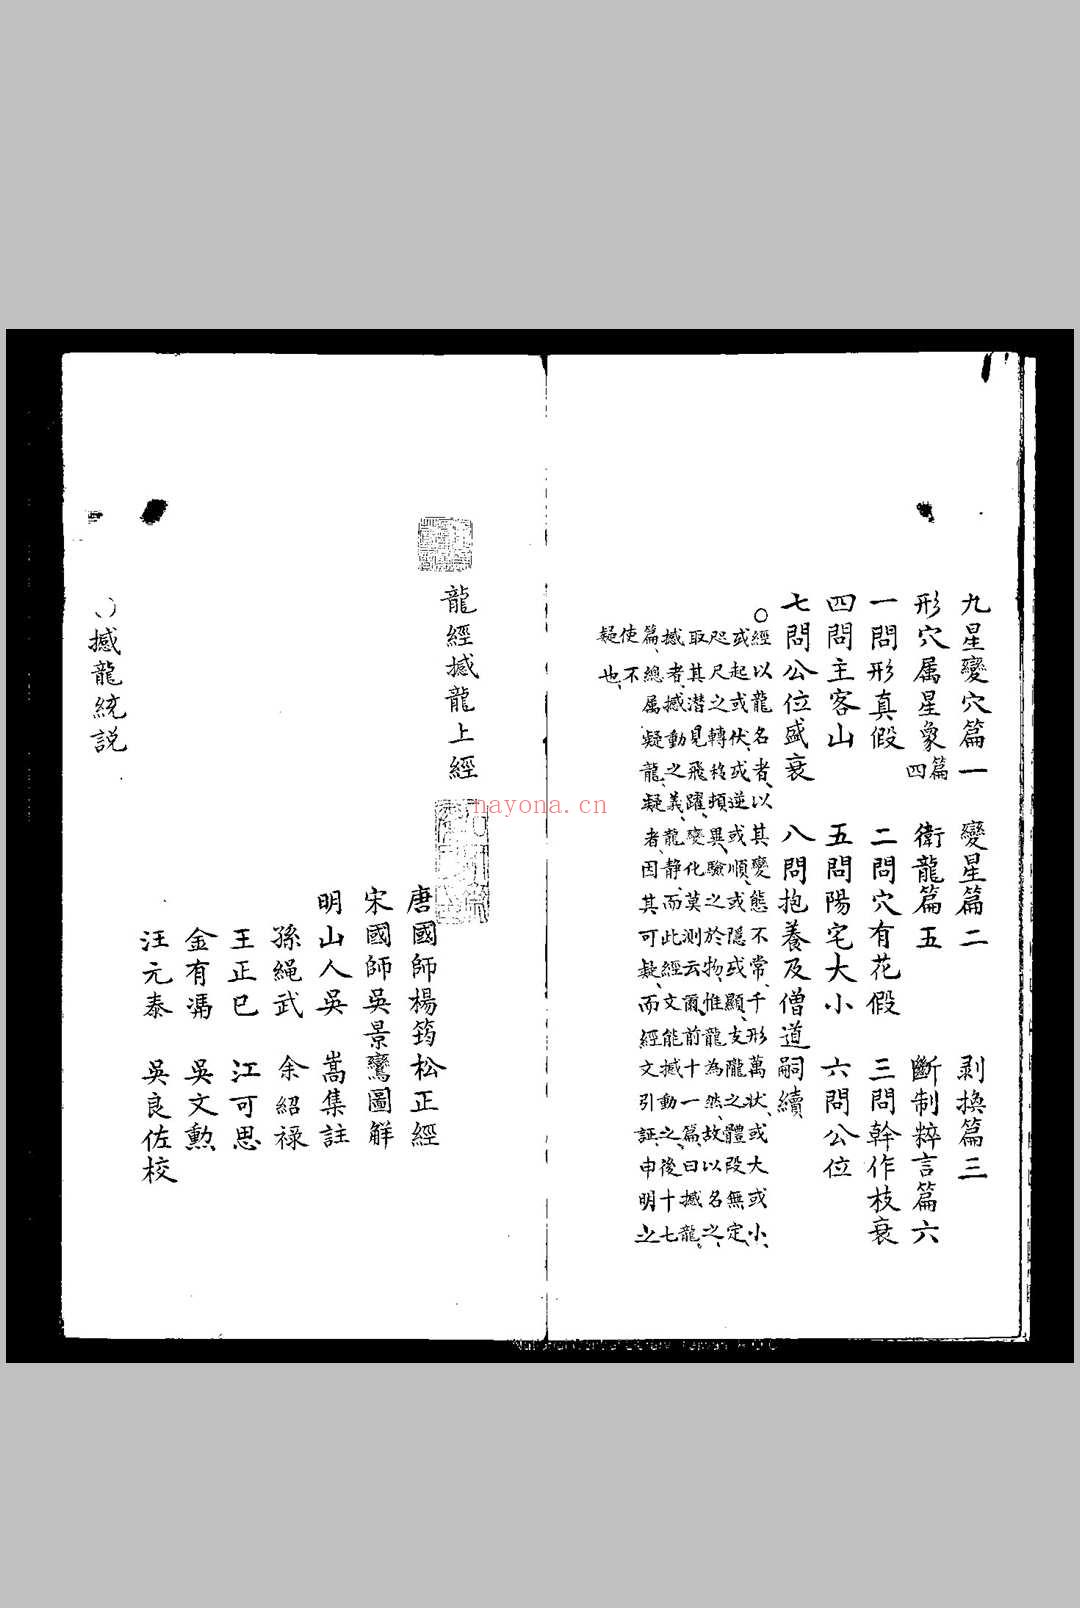 九星變穴篇一　變星篇二　剥換篇三
形穴属星象篇四　衛龍篇五　斷制粹言篇六
一問形真假　二問穴有花假　三問幹作枝衰
四問主客山　五問陽宅大小　六問公位
七問公位盛衰　八問抱養及僧道嗣續
○經以龍名者、以其變態不常、千形萬状、或大或小、
或起或伏、或逆或順、或隱或顯、支隴之體段無定、
咫尺之轉移頓異、驗之於物、惟龍為然、故以名之、
取其潜見飛躍、變化莫測云爾、前十一篇、曰撼龍、
撼者、撼動之義、龍静、而此經文能撼動之、後十七
篇、總属疑龍、疑者、因其可疑、而經文引証、申明之
使不
疑也、
龍經撼龍上經
唐國師楊筠松正經
宋國師吳景鸞圖解
明山人吳　嵩集註
孫繩武　余紹祿
王正已　江可思
金有馮　吳文勲
汪元泰　吳良佐校
○撼龍統説
nayona.cn